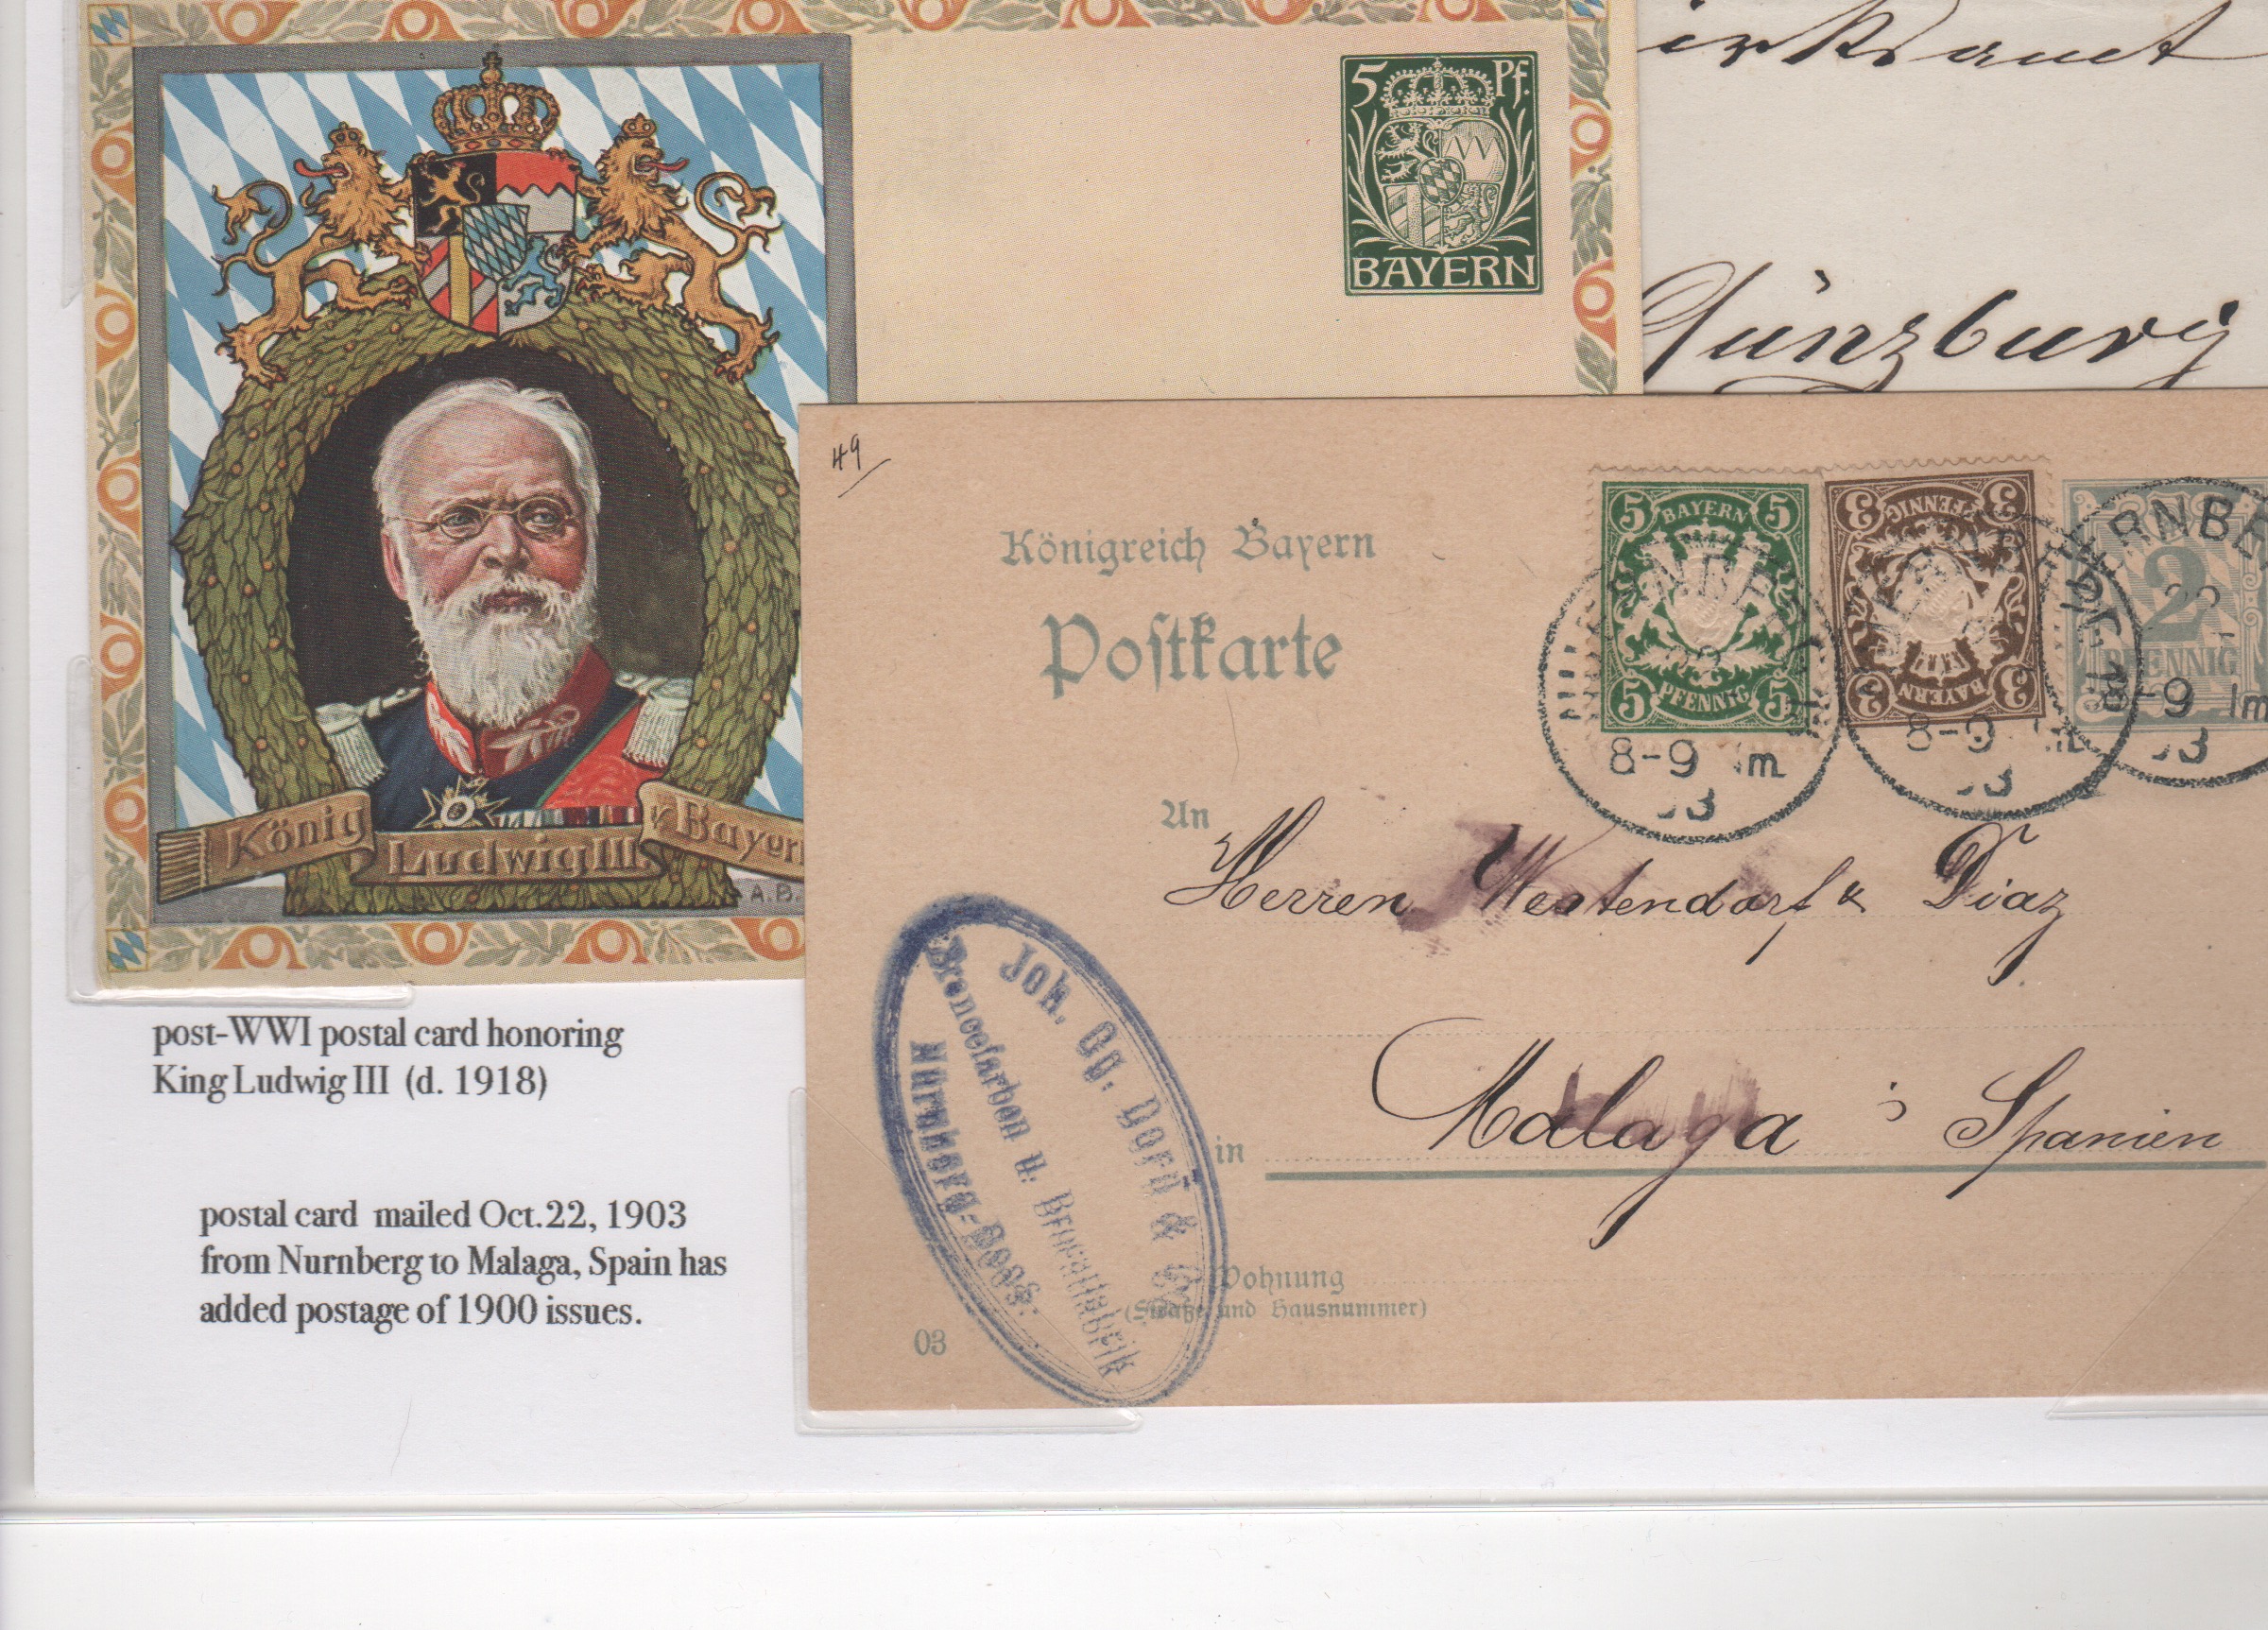 5 Pf.
BAYERN
Günzburg
König Ludwig III. v. Bayern
A.B.
post-WWI postal card honoring
King Ludwig III (d. 1918)
postal card mailed Oct.22, 1903
from Nurnberg to Malaga, Spain has
added postage of 1900 issues.
49
Königreich Bayern
Postkarte
5 BAYERN 5
5 PFENNIG 5
3 PFENNIG 3
3 BAYERN 3
2
PFENNIG
22
8-9
03
8-9
03
8-9
03
An
Herren Westendorf & Diaz
in
Malaga i Spanien
Wohnung
(Straße und Hausnummer)
03
Joh. Gg.
Broncefarben u. Brocatfabrik
Nürnberg-Doos.